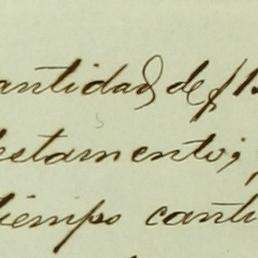 antidad de $ 1
estamento;
tiempo canti